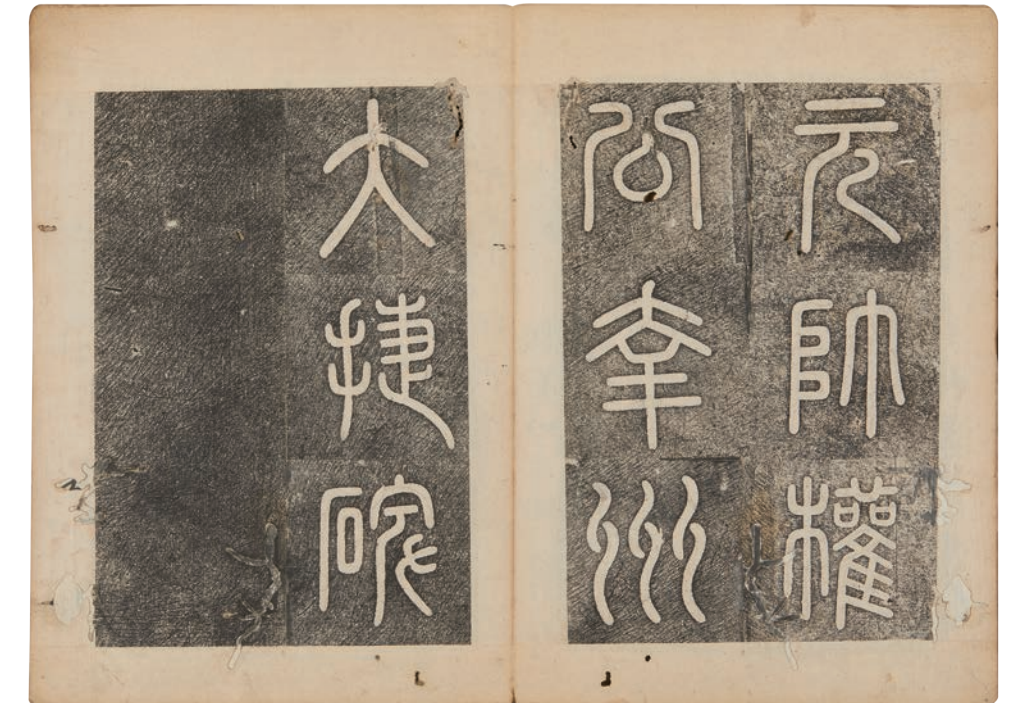 元帥權
公幸州
大捷碑